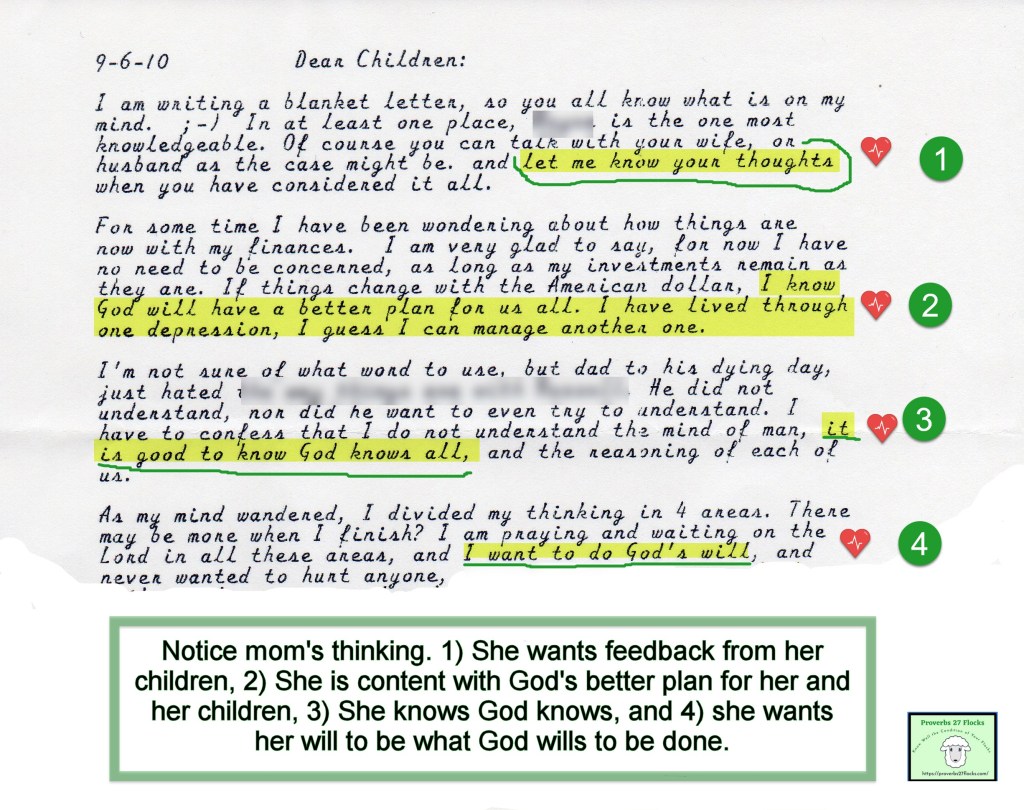 9-6-10 Dear Children:
I am writing a blanket letter, so you all know what is on my
mind. ;-) In at least one place, is the one most
knowledgeable. Of course you can talk with your wife, or
husband as the case might be. and let me know your thoughts
when you have considered it all.
1
For some time I have been wondering about how things are
now with my finances. I am very glad to say, for now I have
no need to be concerned, as long as my investments remain as
they are. If things change with the American dollar, I know
God will have a better plan for us all. I have lived through
one depression, I guess I can manage another one.
2
I'm not sure of what word to use, but dad to his dying day,
just hated He did not
understand, nor did he want to even try to understand. I
have to confess that I do not understand the mind of man, it
is good to know God knows all, and the reasoning of each of
us.
3
As my mind wandered, I divided my thinking in 4 areas. There
may be more when I finish? I am praying and waiting on the
Lord in all these areas, and I want to do God's will, and
never wanted to hurt anyone,
4
Notice mom's thinking. 1) She wants feedback from her
children, 2) She is content with God's better plan for her and
her children, 3) She knows God knows, and 4) she wants
her will to be what God wills to be done.
Proverbs 27 Flocks
Know Well the Condition of Your Flocks
https://proverbs27flocks.com/